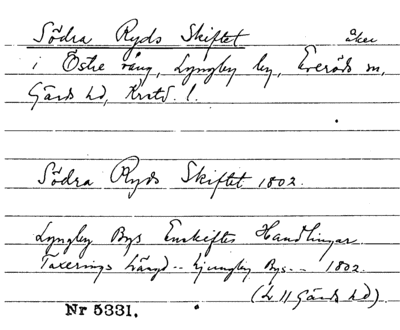 Södra Ryds Skiftet åker
i Östre vång, Lyngby by, Everöds sn,
Gärds hd, Krstd. l.
Södra Ryds Skiftet 1802.
Lyngby Bys Enskiftes Handlingar
Taxerings Längd -- Ljungby Bys -- 1802.
(L 11 Gärds hd)
Nr 5331.